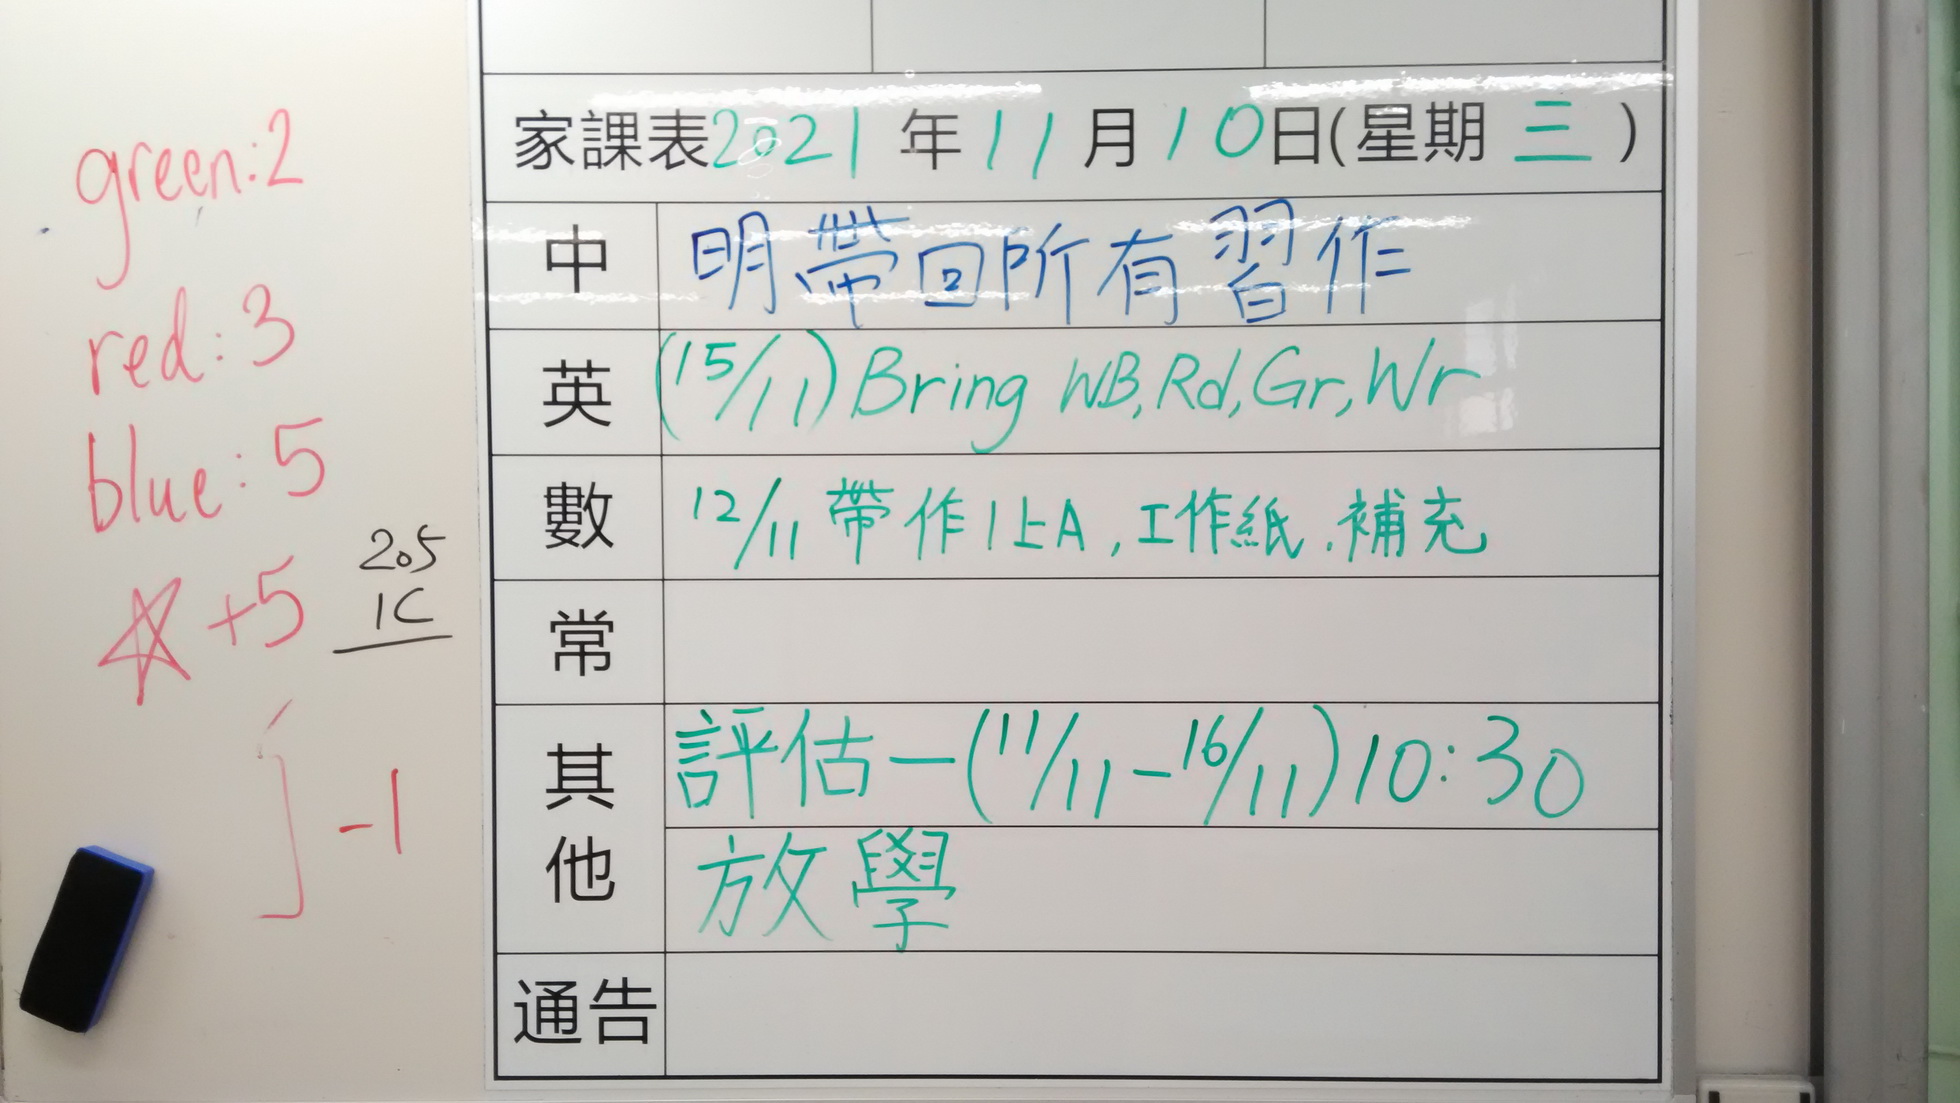 green:2
red:3
blue:5
☆ +5
205
1C
-1
家課表2021年11月10日(星期三)
中 明帶回所有習作
英 (15/11) Bring WB, Rd, Gr, Wr
數 12/11 帶作1上A, 工作紙、補充
常
其他 評估一(11/11-16/11) 10:30
放學
通告